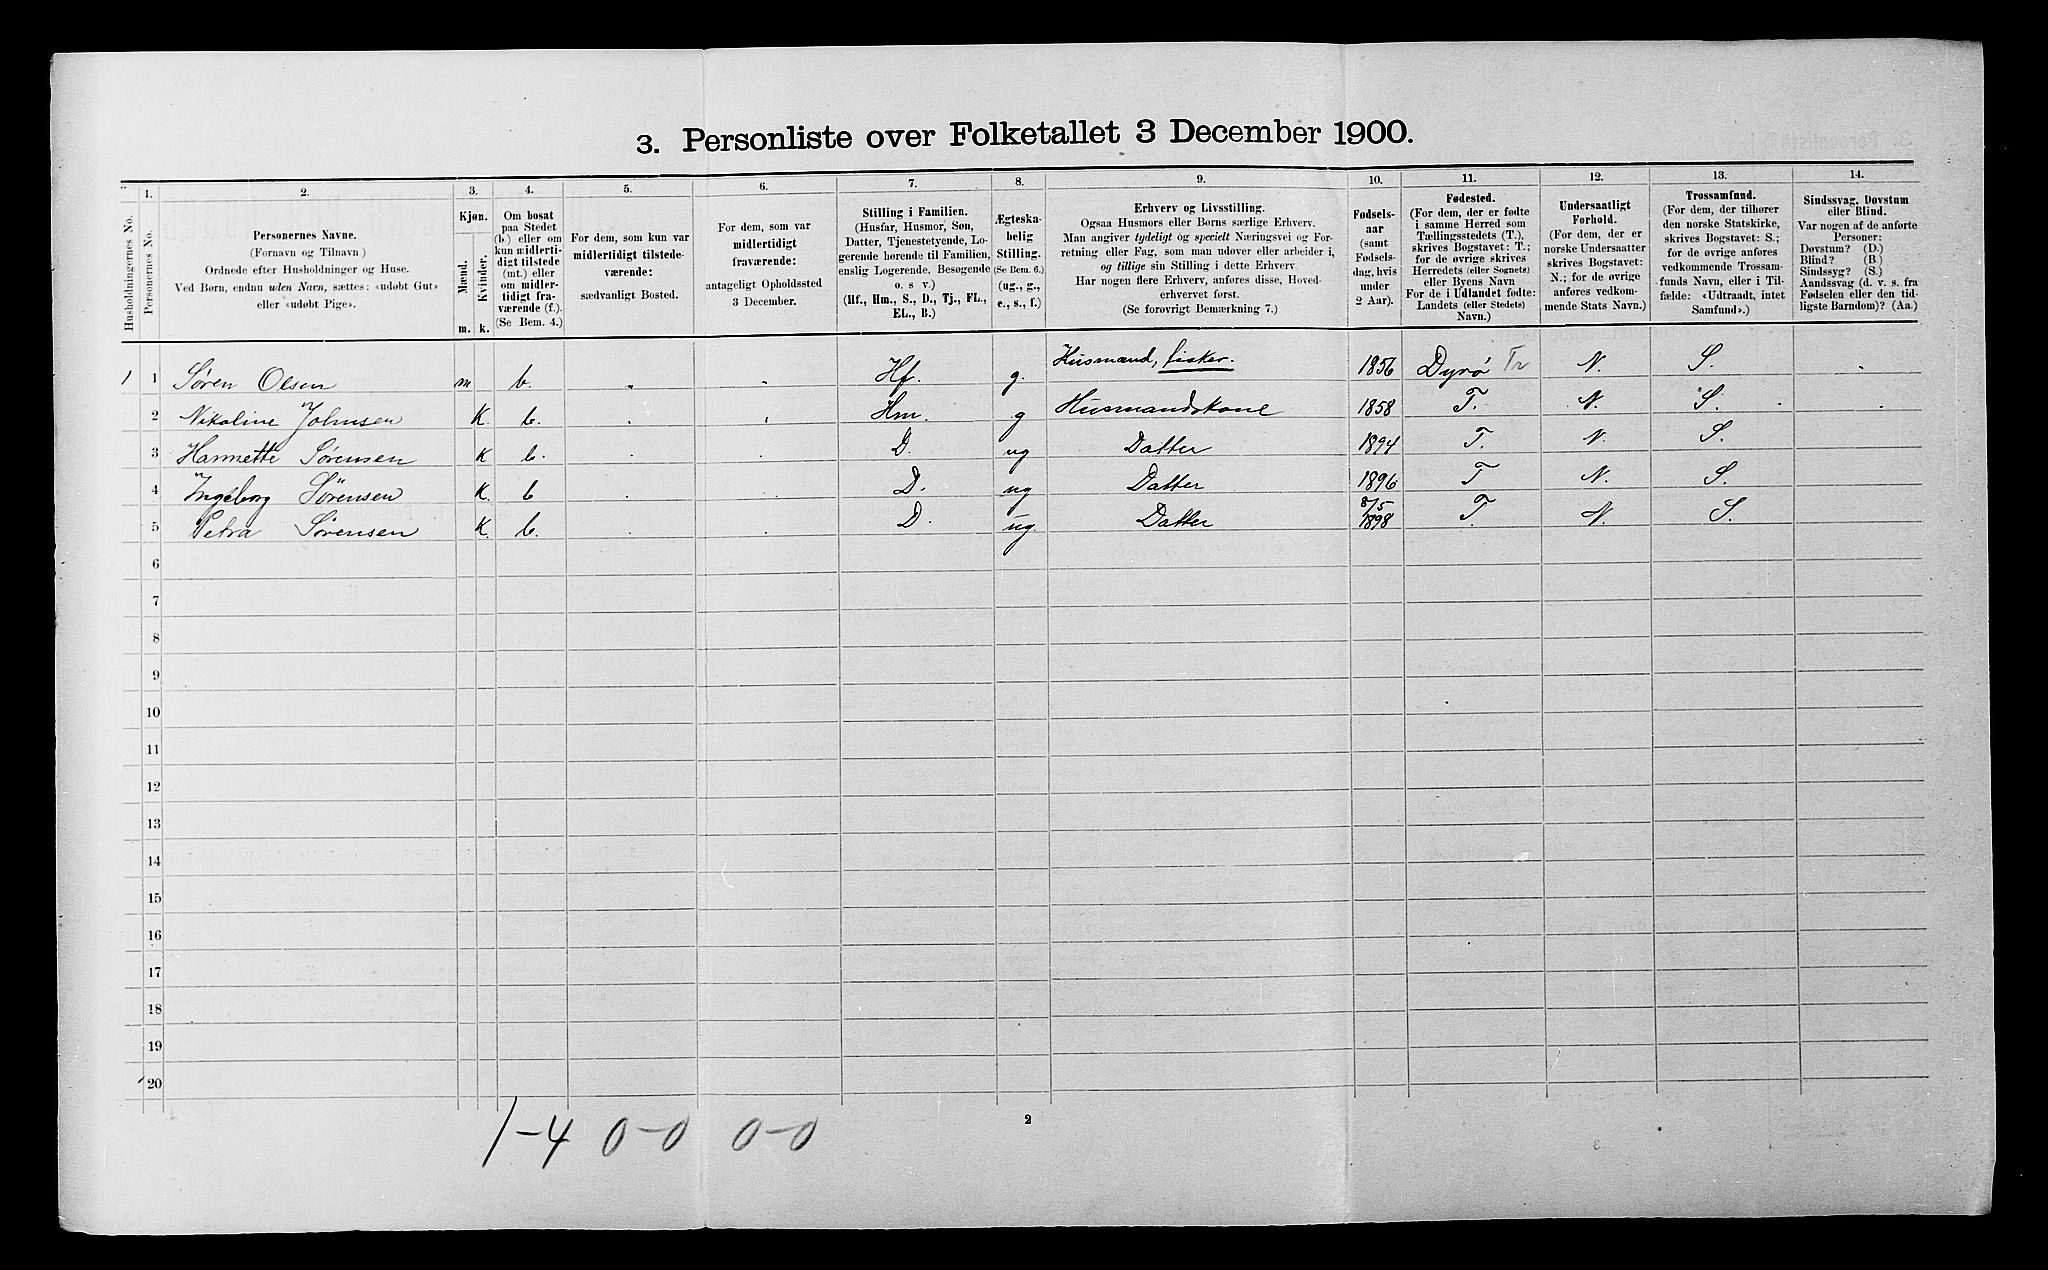 3. Personliste over Folketallet 3 December 1900.
1. 2. 3. 4. 5. 6. 7. 8. 9. 10. 11. 12. 13. 14.
Husholdningernes No.
Personernes No.
Personernes Navne.
(Fornavn og Tilnavn)
Ordnede efter Husholdninger og Huse.
Ved Børn, endnu uden Navn, sættes: «udøbt Gut»
eller «udøbt Pige».
Kjøn.
Mænd.
Kvinder.
m. k.
Om bosat
paa Stedet
(b.) eller om
kun midlerti-
digt tilstede
(mt.) eller
om midler-
tidigt fra-
værende (f.).
(Se Bem. 4.)
For dem, som kun var
midlertidigt tilstede-
værende:
sædvanligt Bosted.
For dem, som var
midlertidigt
fraværende:
antageligt Opholdssted
3 December.
Stilling i Familien.
(Husfar, Husmor, Søn,
Datter, Tjenestetyende, Lo-
gerende hørende til Familien,
enslig Logerende, Besøgende
o. s v.)
(Hf., Hm., S., D., Tj., FL.,
EL., B.)
Ægteska-
belig
Stilling.
(Se Bem. 6.)
(ug., g.,
e., s., f.)
Erhverv og Livsstilling.
Ogsaa Husmors eller Børns særlige Erhverv.
Man angiver tydeligt og specielt Næringsvei og For-
retning eller Fag, som man udøver eller arbeider i,
og tillige sin Stilling i dette Erhverv.
Har nogen flere Erhverv, anføres disse, Hoved-
erhvervet først.
(Se forøvrigt Bemærkning 7.)
Fødsels-
aar
(samt
Fødsels-
dag, hvis
under
2 Aar).
Fødested.
(For dem, der er fødte
i samme Herred som
Tællingsstedets (T.),
skrives Bogstavet: T.;
for de øvrige skrives
Herredets (eller Sognets)
eller Byens Navn
For de i Udlandet fødte:
Landets (eller Stedets)
Navn.)
Undersaatligt
Forhold.
(For dem, der er
norske Undersaatter
skrives Bogstavet:
N.; for de øvrige
anføres vedkom-
mende Stats Navn.)
Trossamfund.
(For dem, der tilhører
den norske Statskirke,
skrives Bogstavet: S.;
for de øvrige anføres
vedkommende Trossam-
funds Navn, eller i Til-
fælde: «Udtraadt, intet
Samfund».)
Sindssvag, Døvstum
eller Blind.
Var nogen af de anførte
Personer:
Døvstum? (D.)
Blind? (B.)
Sindssyg? (S.)
Aandssvag (d. v. s. fra
Fødselen eller den tid-
ligste Barndom)? (Aa.)
1 1 Søren Olsen m b. " " Hf. g. Husmand, fisker. 1856 Dyrø Tr N. S. .
2 Nikoline Johnsen K. b. Hm. g Husmandskone 1858 T. N. S.
3 Hannette Sørensen K b. D. ug Datter 1894 T. N. S.
4 Ingeborg Sørensen K. b D. ug Datter 1896 T N. S.
5 Petra Sørensen K. b. D. ug. Datter 8/5 1898 T. N. S.
6
7
8
9
10
11
12
13
14
15
16
17
18
19
20
1-4 0-0 0-0
2